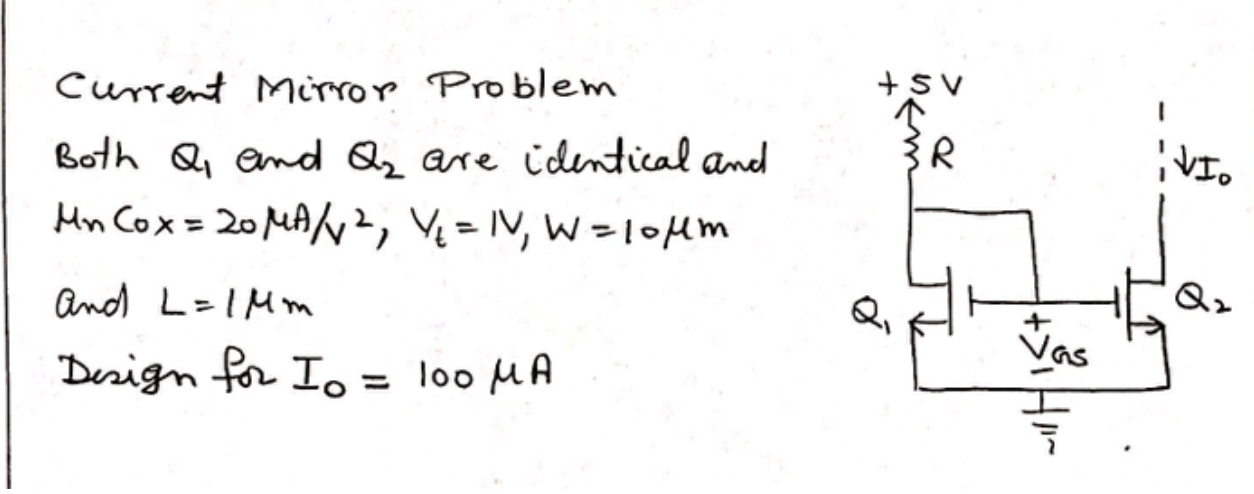 Current Mirror Problem
Both Q₁ and Q₂ are identical and
μn Cox = 20 μA/V², Vt = 1V, W = 10 μm
and L = 1 μm
Design for I₀ = 100 μA
+5V
R
↓I₀
Q₁
Q₂
+
VGS
−